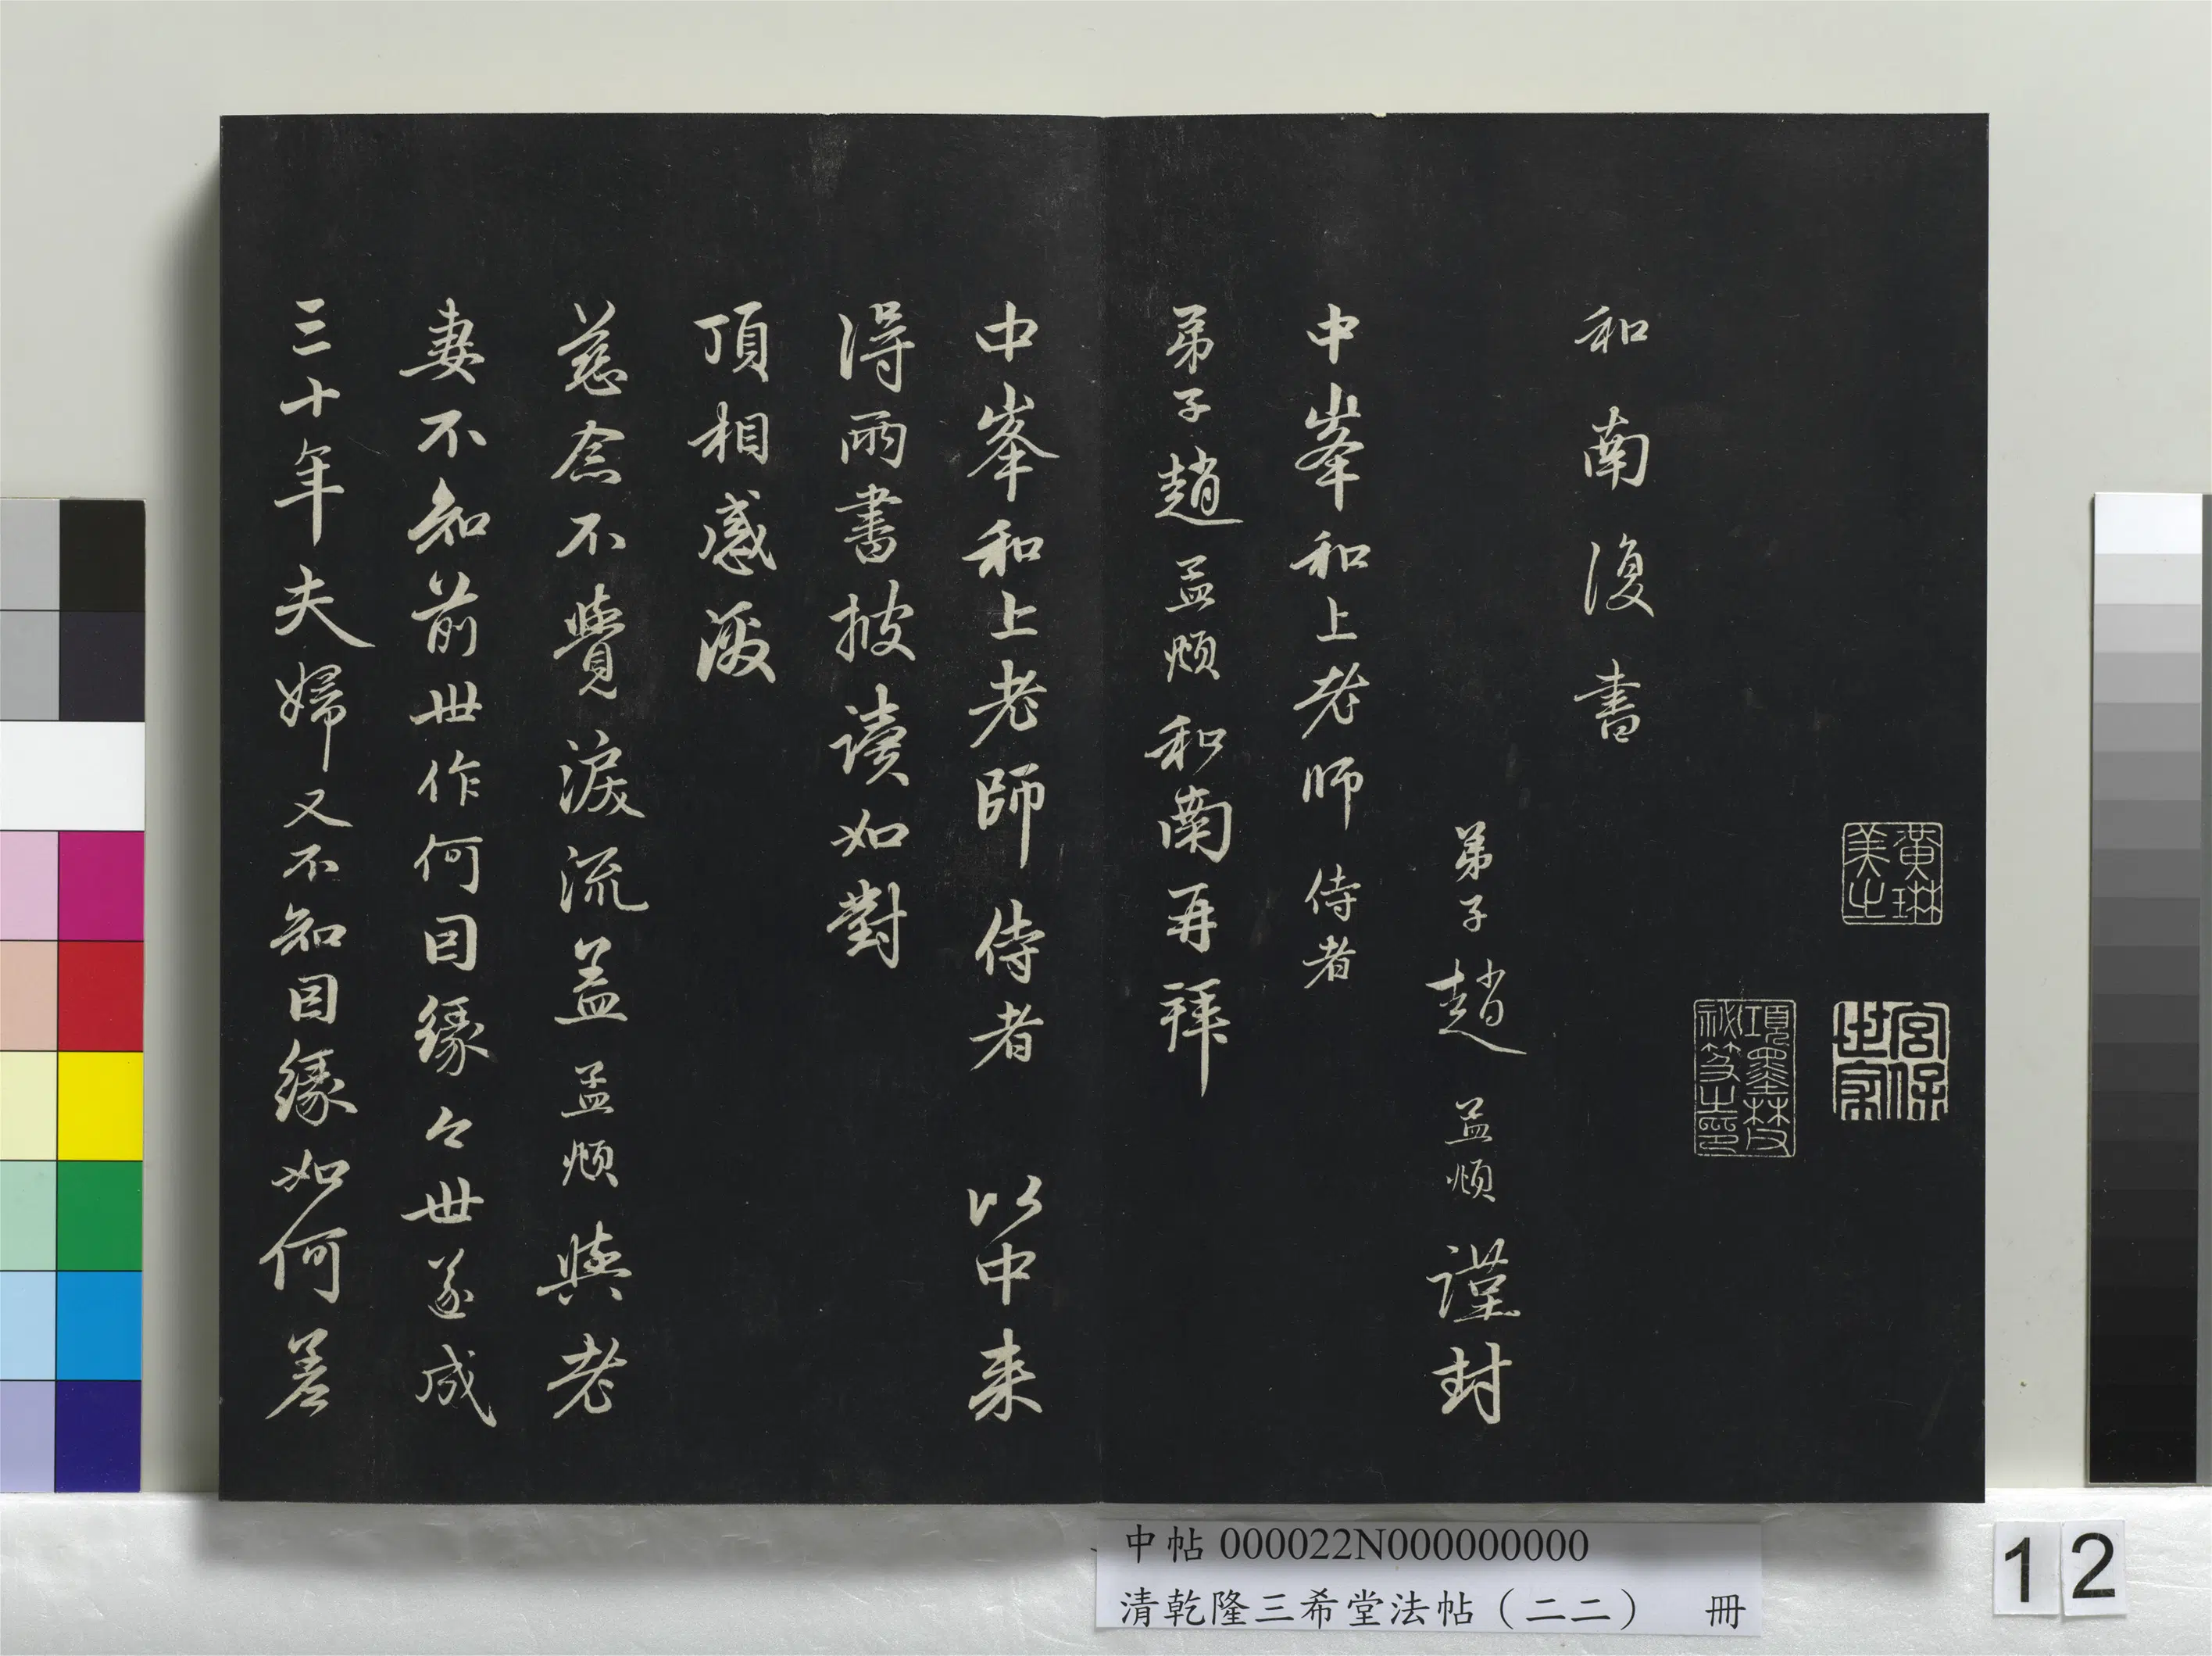 黃琳
美之
宮保
世家
項墨林父
祕笈之印
和南復書
弟子趙孟頫謹封
中峯和上老师侍者
弟子趙孟頫和南再拜
中峯和上老師侍者以中来
得兩書披讀如對
頂相感激
慈念不覺淚流盖孟頫與老
妻不知前世作何因緣々世遂成
三十年夫婦又不知因緣如何差
中帖 000022N000000000
清乾隆三希堂法帖（二二） 冊
12